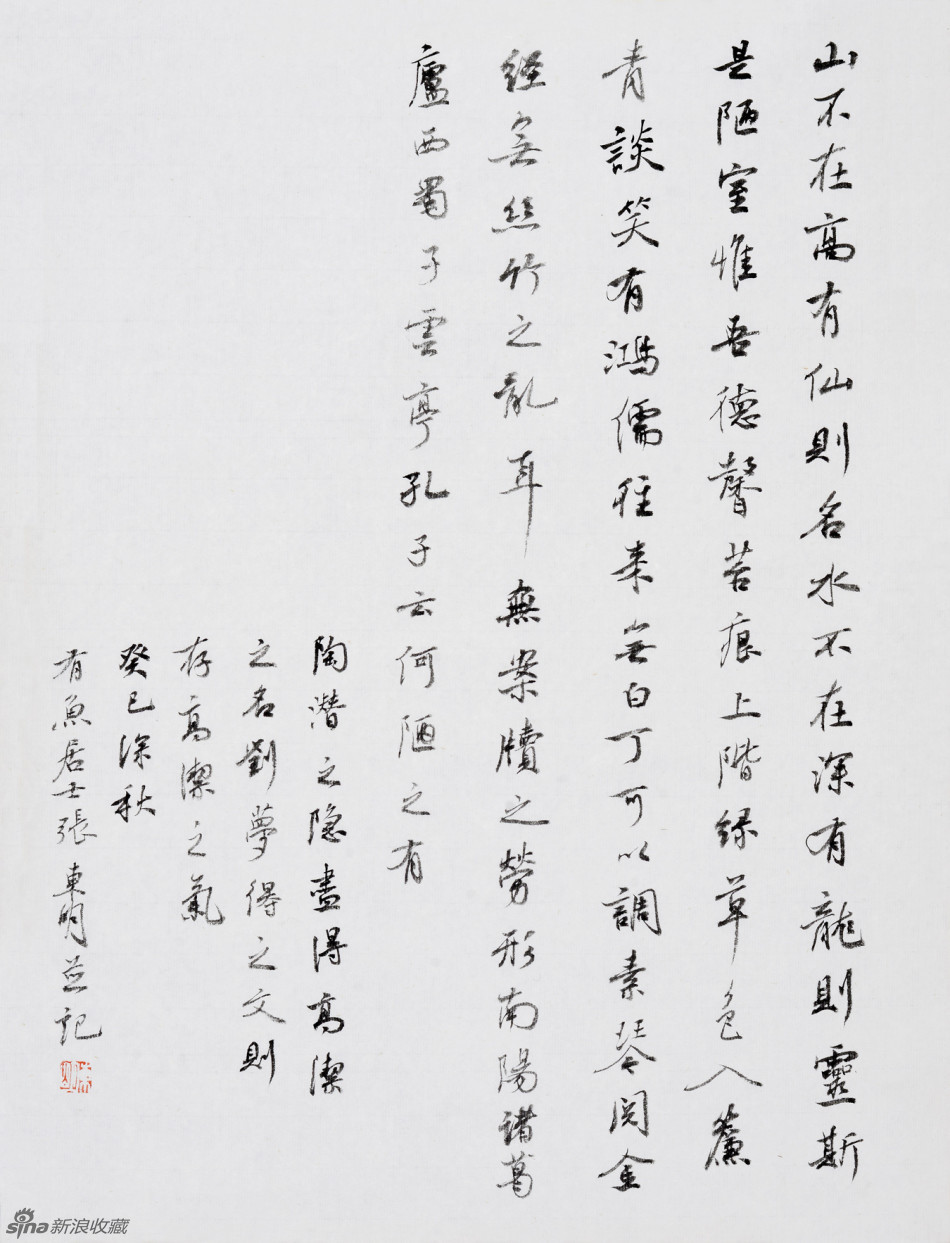 山不在高有仙則名水不在深有龍則靈斯
是陋室惟吾德馨苔痕上階綠草色入簾
青談笑有鴻儒往来無白丁可以調素琴閱金
经無絲竹之亂耳無案牘之勞形南陽諸葛
廬西蜀子雲亭孔子云何陋之有
陶潛之隐盡得高潔
之名劉夢得之文則
存高潔之氣
癸巳深秋
有魚居士張東明並記
sina新浪收藏